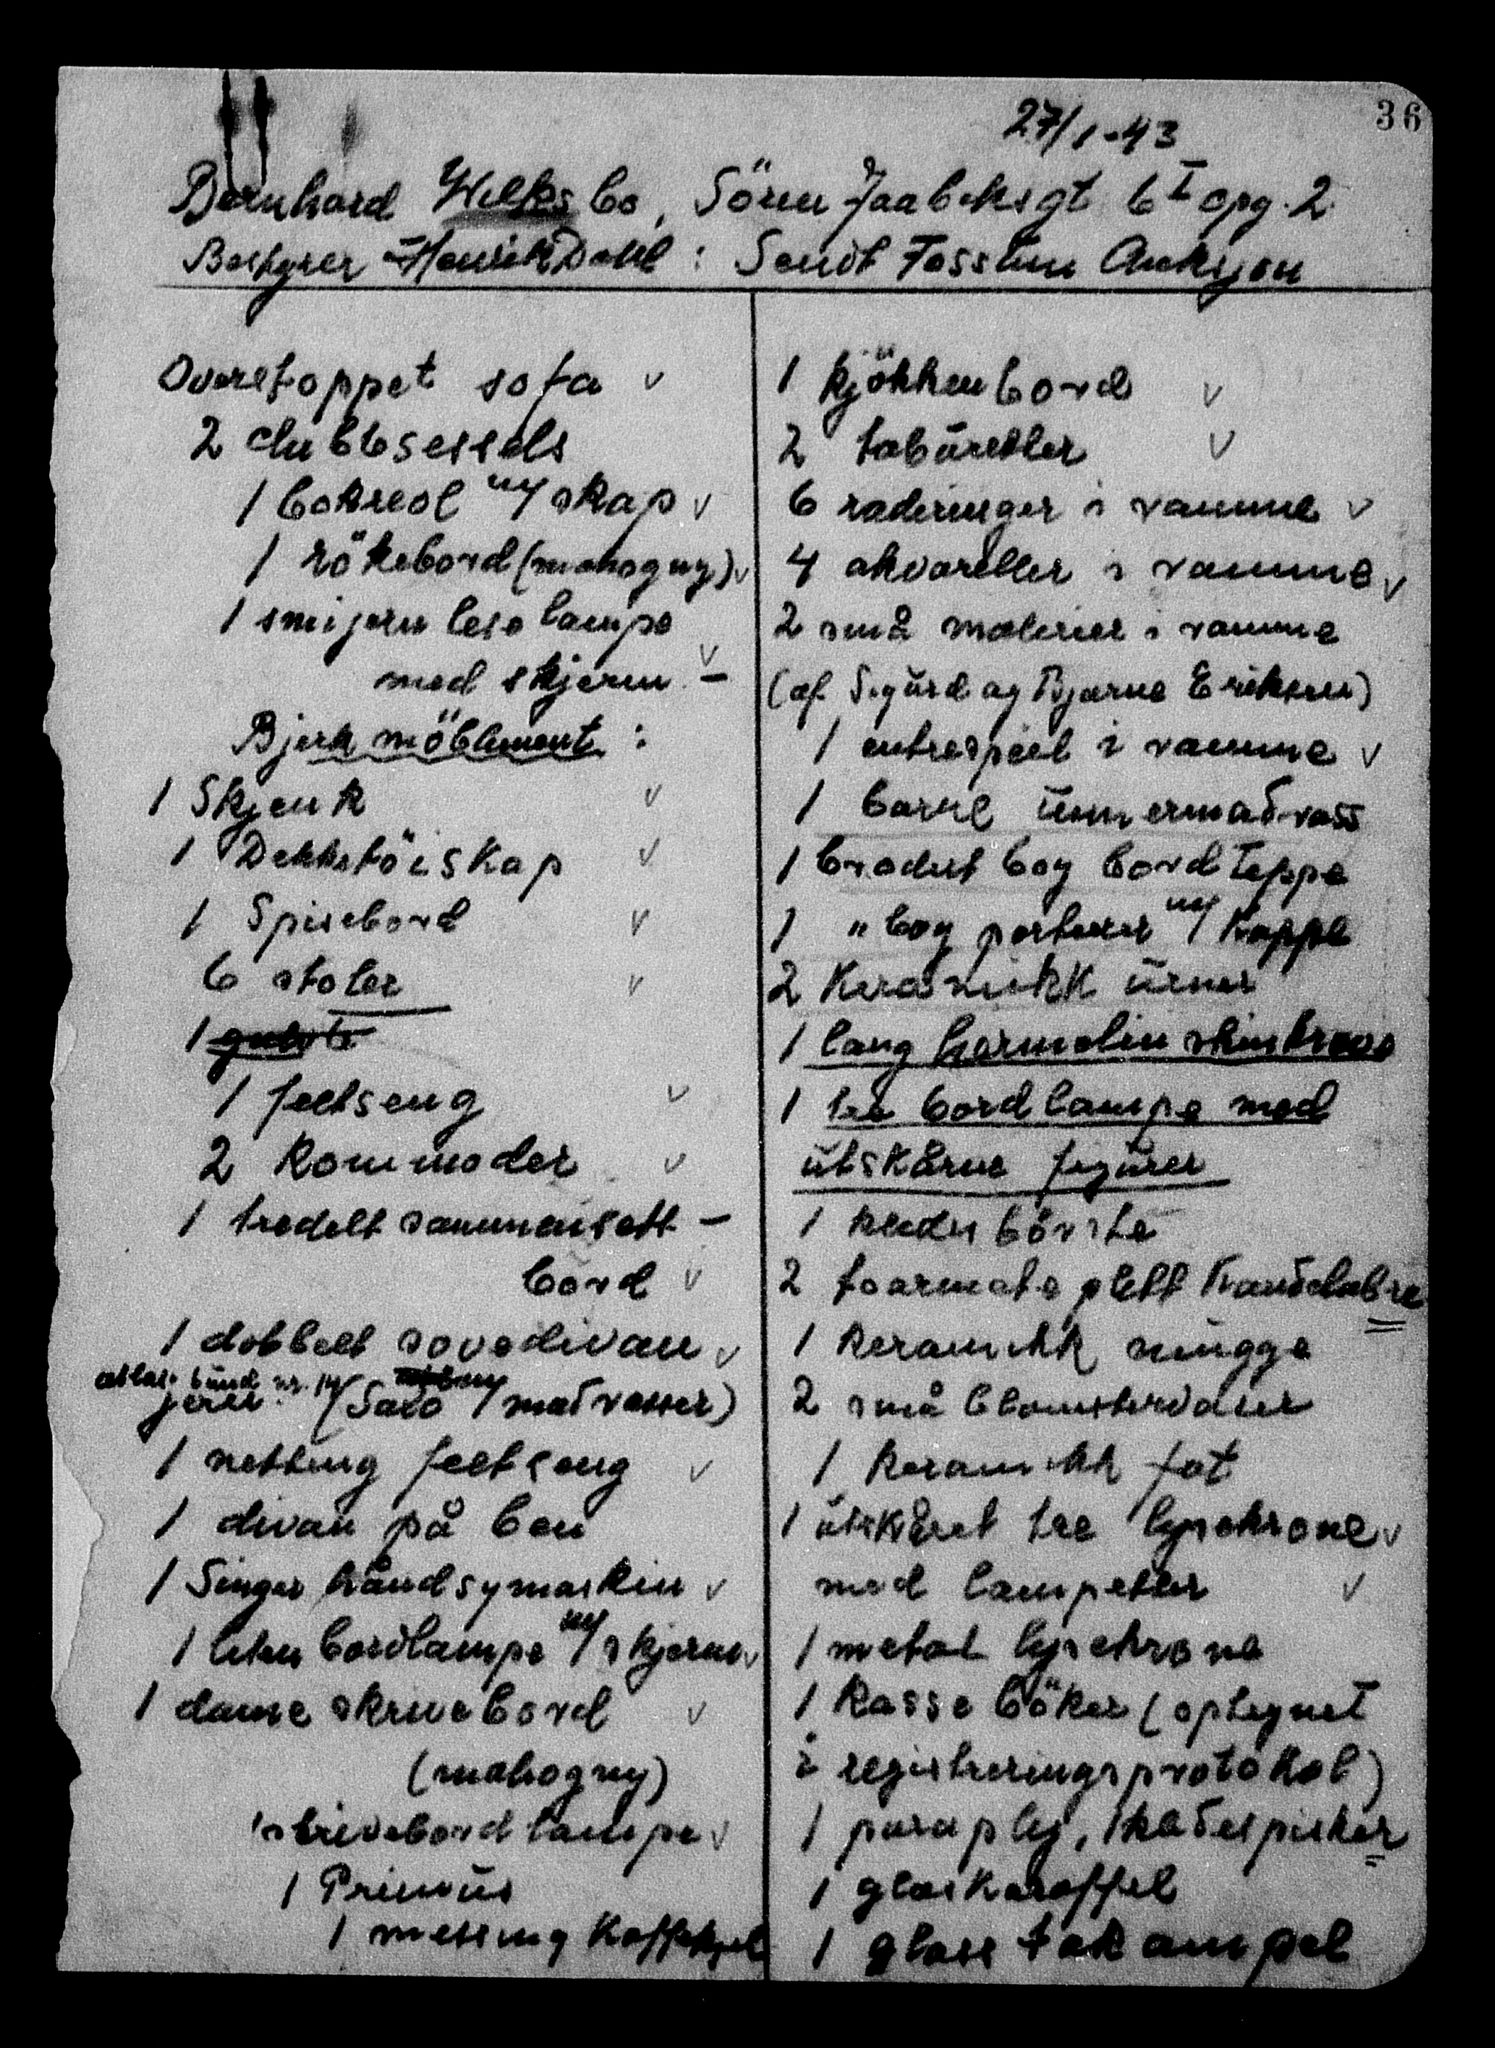 36
27/1-43
Bernhard Wilks bo, Sören Jaabeksgt 6 I opg. 2
Bestyrer Henrik Dahl : Sendt Fosstun Auksjon
Overstoppet sofa v
2 clubbsessels
1 bokreol m/ skap v
1 rökebord (mahogny) v
1 smijern lese lampe
med skjerm - v
Bjerk möblement :
1 Skjenk v
1 Dekketöiskap v
1 Spisebord v
6 stoler v
1
1 feltseng v
2 Kommoder v
1 tredelt sammensatt -
bord v
1 dobbelt sovedivan v
(Saro / madrasser)
1 netting feltseng v
1 divan på ben
1 Singer håndsymaskin v
1 liten bordlampe m/ skjerm v
1 dame skrivebord v
(mahogny)
1 skrivebordlampe v
1 Primüs
1 messing Kaffekjel
1 kjökkenbord v
2 tabüretter v
6 raderinger i ramme v
4 akvareller i ramme v
2 små malerier i ramme
(af Sigürd og Bjarne Eriksen)
1 entrespeil i ramme v
1 barne ünnermadrass
1 brodert boy bordteppe
1 " boy portierer m/ Kappe
2 Keramikk ürner
1 lang hermelin skinkrave
1 tre bordlampe med
ütskårne figürer
1 kledesbörste
2 toarmete plett Kandelabre
1 keramikk mügge
2 små blomstervaser
1 keramikk fat
1 ütskåret tre lysekrone v
med lampetter v
1 metal lysekrone
1 Kasse böker (optegnet
i registreringsprotokol)
1 paraply, 1 kladespisker
1 glaskaraffel
1 glass takampel